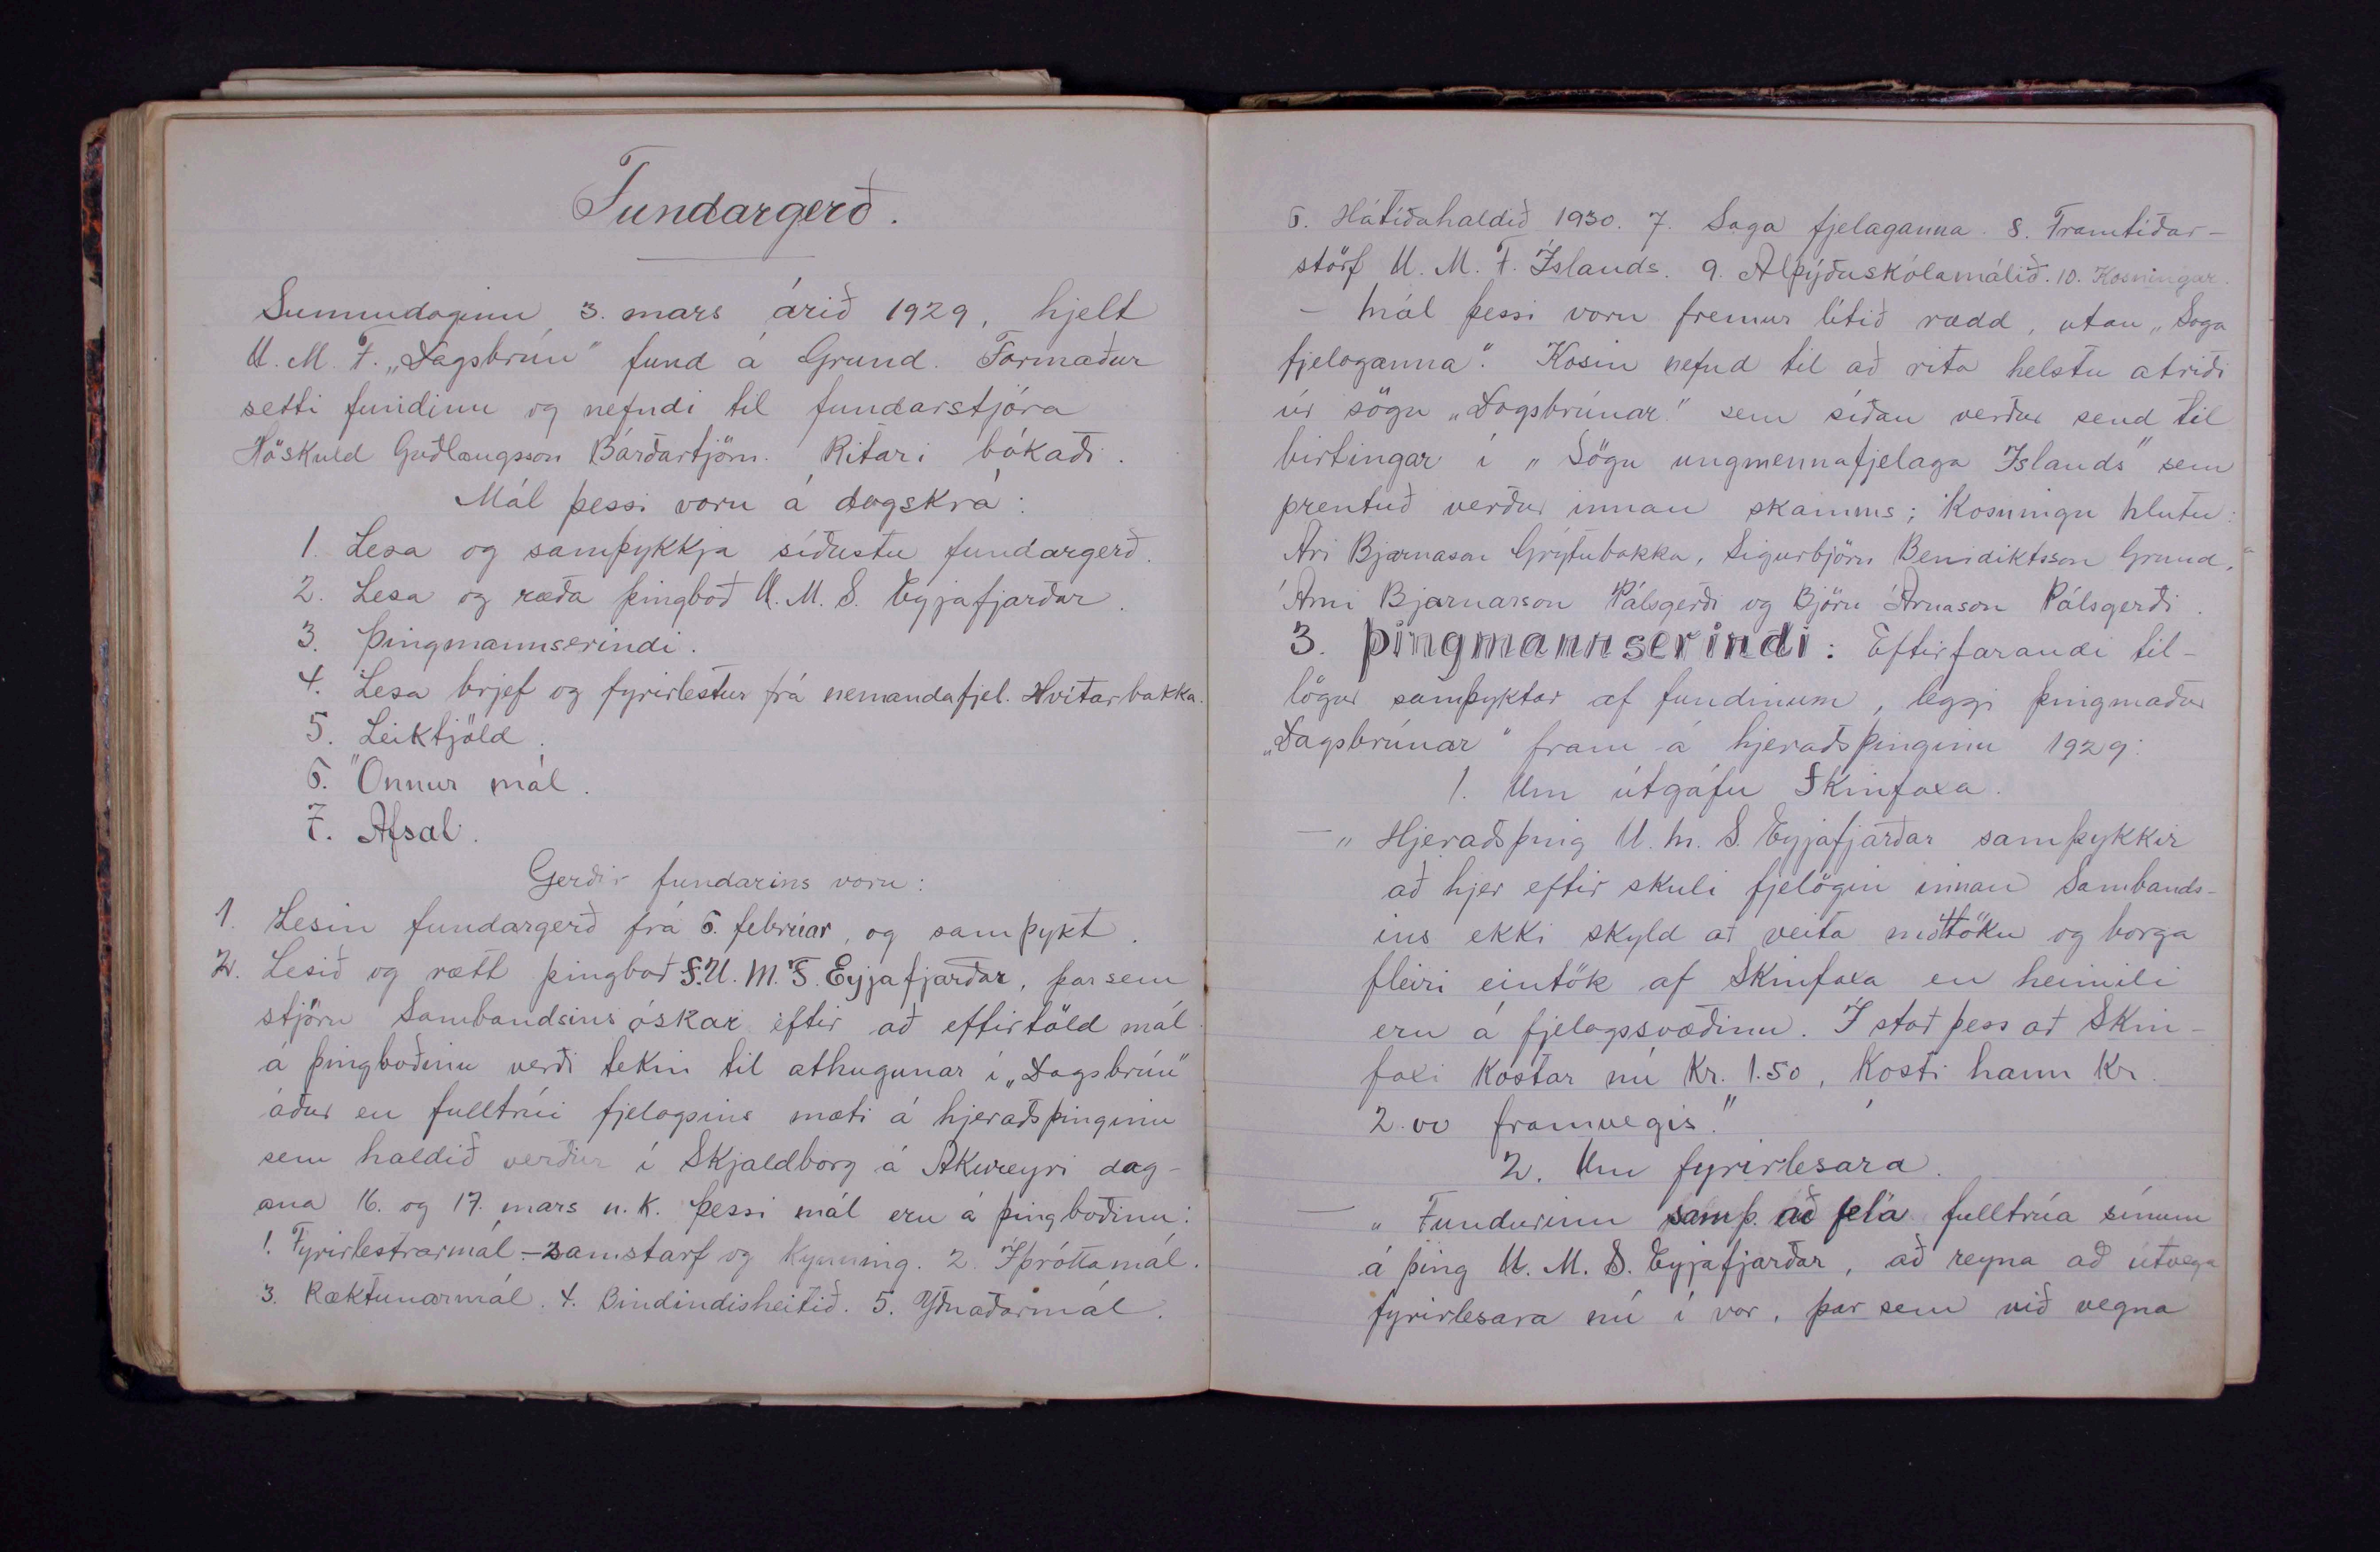 Fundargerð.
Sunnudaginn 3. mars árið 1929, hjelt
U. M. F. „Dagsbrún" fund á Grund. Formaður
setti fundinn og nefndi til fundarstjóra
Höskuld Guðlaugsson Bárðartjörn. Ritari bókaði.
Mál þessi voru á dagskrá:
1. Lesa og samþykkja síðustu fundargerð.
2. Lesa og ræða þingboð U. M. S. Eyjafjarðar.
3. Þingmannserindi.
4. Lesa brjef og fyrirlestur frá nemandafjel. Hvítárbakka.
5. Leiktjöld.
6. Önnur mál.
7. Afsal.
Gerðir fundarins voru:
1. Lesin fundargerð frá 6. febrúar, og samþykt.
2. Lesið og rætt þingboð S.U.M.F. Eyjafjarðar, þar sem
stjórn Sambandsins óskar eftir að eftirtöld mál
á þingboðinu verði tekin til athugunar í „Dagsbrún"
áður en fulltrúi fjelagsins mæti á hjeraðsþinginu
sem haldið verður í Skjaldborg á Akureyri dag-
ana 16. og 17. mars n.k. Þessi mál eru á þingboðinu:
1. Fyrirlestrarmál - samstarf og kynning. 2. Íþróttamál.
3. Ræktunarmál. 4. Bindindisheitið. 5. Yðnaðarmál.
6. Hátíðahaldið 1930. 7. Saga fjelaganna. 8. Framtíðar-
störf U. M. F. Íslands. 9. Alþýðuskólamálið. 10. Kosningar.
- Mál þessi voru fremur lítið rædd, utan „Saga
fjelaganna". Kosin nefnd til að rita helstu atriði
úr sögu „Dagsbrúnar" sem síðan verður send til
birtingar í „Sögu ungmennafjelaga Íslands" sem
prentuð verður innan skamms; Kosningu hlutu:
Ari Bjarnason Grýtubakka, Sigurbjörn Benidiktsson Grund,
Árni Bjarnarson Pálsgerði og Björn Árnason Pálsgerði.
3. Þingmannserindi: Eftirfarandi til-
lögur samþyktar af fundinum, leggi þingmaður
„Dagsbrúnar" fram á hjeraðsþinginu 1929:
1. Um útgáfu Skinfaxa.
- „Hjeraðsþing U. M. S. Eyjafjarðar samþykkir
að hjer eftir skuli fjelögin innan Sambands-
ins ekki skyld að veita móttöku og borga
fleiri eintök af Skinfaxa en heimili
eru á fjelagssvæðinu. Í stað þess að Skin-
faxi kostar nú Kr. 1.50, kosti hann Kr.
2.00 framvegis."
2. Um fyrirlesara.
- „Fundurinn samþ. að fela fulltrúa sínum
á þing U. M. S. Eyjafjarðar, að reyna að útvega
fyrirlesara nú í vor, þar sem við vegna